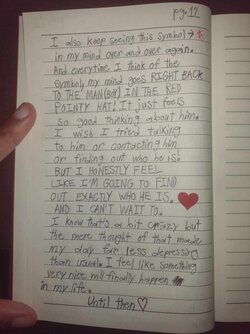 pg. 12
I also keep seeing this symbol →
in my mind over and over again.
And everytime I think of the
symbol, my mind goes RIGHT BACK
TO THE MAN(BOY) IN THE RED
POINTY HAT! It just feels
so good thinking about him.
I wish I tried talking
to him or contacting him
or finding out who he is.
BUT I HONESTLY FEEL
LIKE I'M GOING TO FIND
OUT EXACTLY WHO HE IS.
AND I CAN'T WAIT TO.
I know that's a bit crazy but
the mere thought of that made
my day far less depressing
than usual. I feel like something
very nice will finally happen
in my life.
Until then ♡